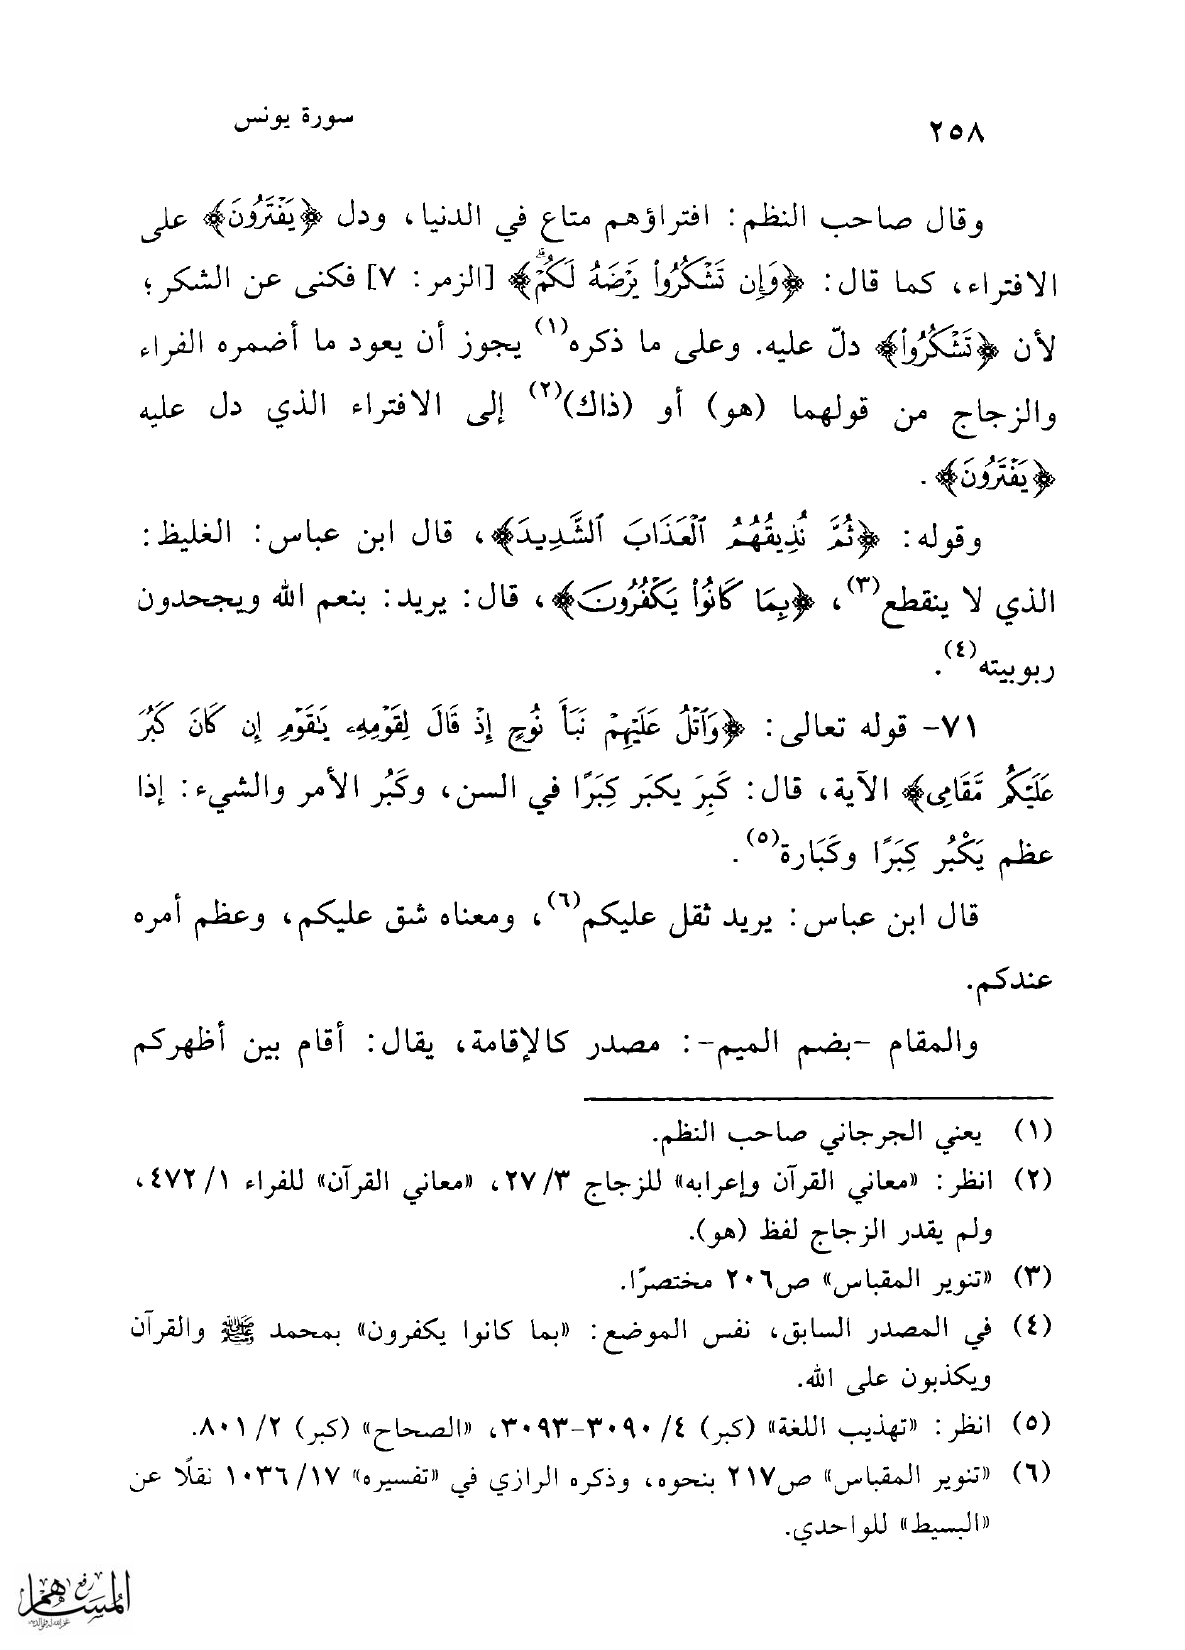 ٢٥٨
سورة يونس
وقال صاحب النظم: افتراؤهم متاع في الدنيا، ودل ﴿يَفْتَرُونَ﴾ على
الافتراء، كما قال: ﴿وَإِن تَشْكُرُوا۟ يَرْضَهُ لَكُمْ ۗ﴾ [الزمر: ٧] فكنى عن الشكر؛
لأن ﴿تَشْكُرُوا۟﴾ دلّ عليه. وعلى ما ذكره(١) يجوز أن يعود ما أضمره الفراء
والزجاج من قولهما (هو) أو (ذاك)(٢) إلى الافتراء الذي دل عليه
﴿يَفْتَرُونَ﴾.
وقوله: ﴿ثُمَّ نُذِيقُهُمُ ٱلْعَذَابَ ٱلشَّدِيدَ﴾، قال ابن عباس: الغليظ:
الذي لا ينقطع(٣)، ﴿بِمَا كَانُوا۟ يَكْفُرُونَ﴾، قال: يريد: بنعم الله ويجحدون
ربوبيته(٤).
٧١- قوله تعالى: ﴿وَٱتْلُ عَلَيْهِمْ نَبَأَ نُوحٍ إِذْ قَالَ لِقَوْمِهِۦ يَٰقَوْمِ إِن كَانَ كَبُرَ
عَلَيْكُم مَّقَامِى﴾ الآية، قال: كَبِرَ يكبَر كِبَرًا في السن، وكَبُر الأمر والشيء: إذا
عظم يَكْبُر كِبَرًا وكَبَارة(٥).
قال ابن عباس: يريد ثقل عليكم(٦)، ومعناه شق عليكم، وعظم أمره
عندكم.
والمقام -بضم الميم-: مصدر كالإقامة، يقال: أقام بين أظهركم
(١) يعني الجرجاني صاحب النظم.
(٢) انظر: «معاني القرآن وإعرابه» للزجاج ٣/ ٢٧، «معاني القرآن» للفراء ١/ ٤٧٢،
ولم يقدر الزجاج لفظ (هو).
(٣) «تنوير المقباس» ص٢٠٦ مختصرًا.
(٤) في المصدر السابق، نفس الموضع: «بما كانوا يكفرون» بمحمد ﷺ والقرآن
ويكذبون على الله.
(٥) انظر: «تهذيب اللغة» (كبر) ٤/ ٣٠٩٠-٣٠٩٣، «الصحاح» (كبر) ٢/ ٨٠١.
(٦) «تنوير المقباس» ص٢١٧ بنحوه، وذكره الرازي في «تفسيره» ١٧/ ١٠٣٦ نقلًا عن
«البسيط» للواحدي.